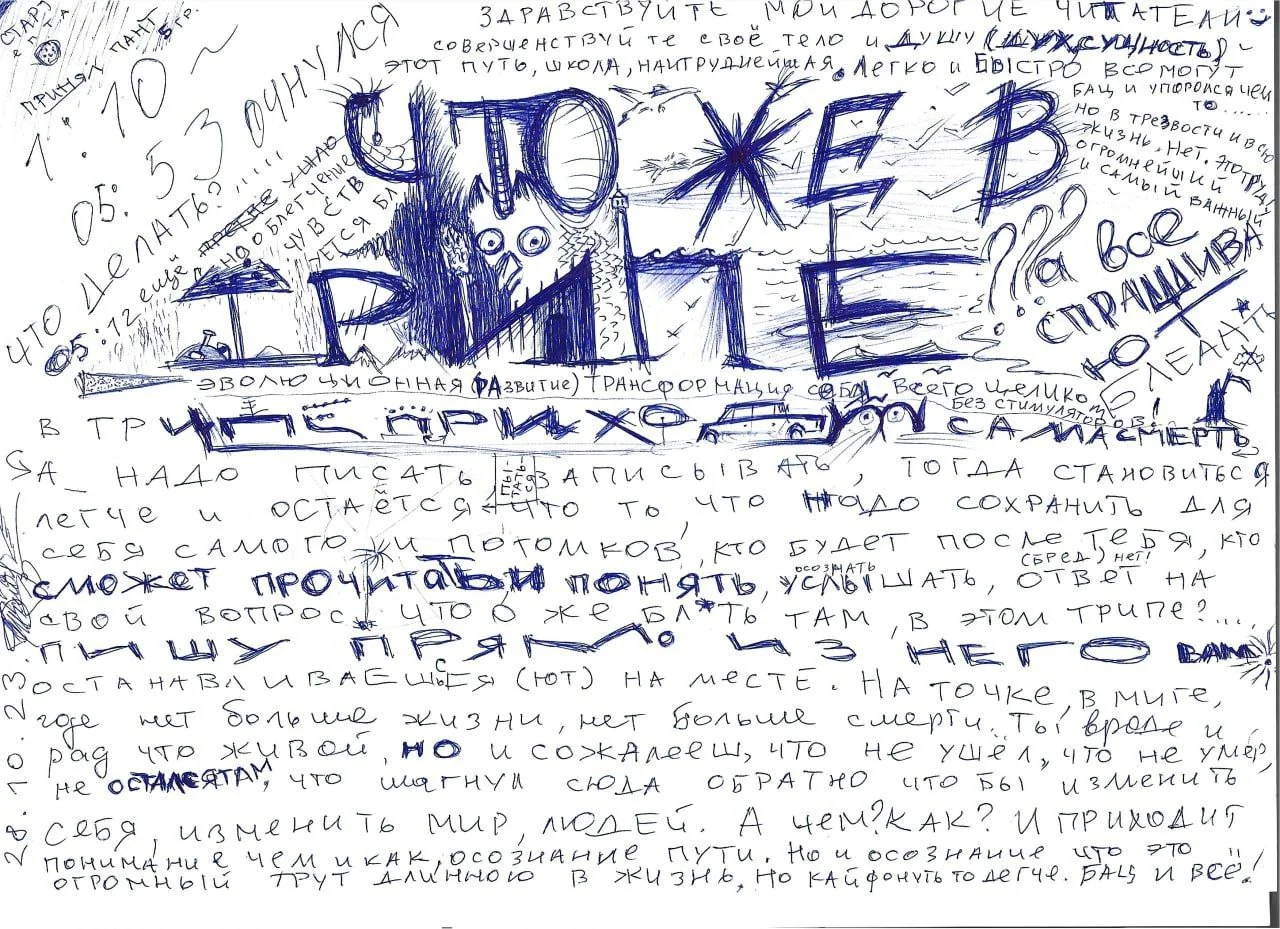 СТАРТ
ПРИНЯЛ ПАНТ 5 гр.
1.10~
05:53 ОЧНУЛСЯ
ЧТО ДЕЛАТЬ?
05:12 ещё
ЗДРАВСТВУЙТЕ МОИ ДОРОГИЕ ЧИТАТЕЛИ
СОВЕРШЕНСТВУЙТЕ СВОЁ ТЕЛО И ДУШУ (ДУХ, СУЩНОСТЬ) ~
ЭТОТ ПУТЬ, ШКОЛА, НАИТРУДНЕЙШАЯ. ЛЕГКО И БЫСТРО ВСЕ МОГУТ
БАЦ И УПОРОЛСЯ ЧЕМ
ТО.....
НО В ТРЕЗВОСТИ И ВСЮ
ЖИЗНЬ. НЕТ. ЭТО ТРУД,
ОГРОМНЕЙШИЙ
И САМЫЙ ВАЖНЫЙ
ЧТО ЖЕ В
ТРИПЕ
??? а все
СПРАШИВА
ЮТ
ЭВОЛЮЦИОННАЯ (РАЗВИТИЕ) ТРАНСФОРМАЦИЯ СЕБЯ ВСЕГО ЦЕЛИКОМ
БЕЗ СТИМУЛЯТОРОВ!
В ТРИПЕ ПРИХОДИТ САМА СМЕРТЬ
ДА НАДО ПИСАТЬ, ПЫ-ТАТЬ-СЯ ЗАПИСЫВАТЬ, ТОГДА СТАНОВИТЬСЯ
ЛЕГЧЕ И ОСТАЁТСЯ ЧТО ТО ЧТО НАДО СОХРАНИТЬ ДЛЯ
СЕБЯ САМОГО И ПОТОМКОВ, КТО БУДЕТ ПОСЛЕ ТЕБЯ, КТО
(БРЕД), НЕТ!
СМОЖЕТ ПРОЧИТАТЬ И ПОНЯТЬ, ОСОЗНАТЬ УСЛЫШАТЬ, ОТВЕТ НА
СВОЙ ВОПРОС ЧТО ЖЕ БЛ*ТЬ ТАМ, В ЭТОМ ТРИПЕ?....
ПИШУ ПРЯМО ИЗ НЕГО ВАМ
ОСТАНАВЛИВАЕШЬСЯ (ЮТ) НА МЕСТЕ. НА ТОЧКЕ, В МИГЕ,
где нет больше жизни, нет больше смерти.. Ты вроде и
рад что живой, НО и сожалееш, что не ушёл, что не умер,
не ОСТАЛСЯ ТАМ, что шагнул сюда обратно что бы изменить
СЕБЯ, ИЗМЕНИТЬ МИР, ЛЮДЕЙ. А ЧЕМ? КАК? И ПРИХОДИТ
ПОНИМАНИЕ ЧЕМ И КАК, ОСОЗНАНИЕ ПУТИ. НО И ОСОЗНАНИЕ ЧТО ЭТО
ОГРОМНЫЙ ТРУТ ДЛИННОЮ В ЖИЗНЬ. НО КАЙФОНУТЬ ТО ЛЕГЧЕ. БАЦ И ВСЁ!
28.10.23.